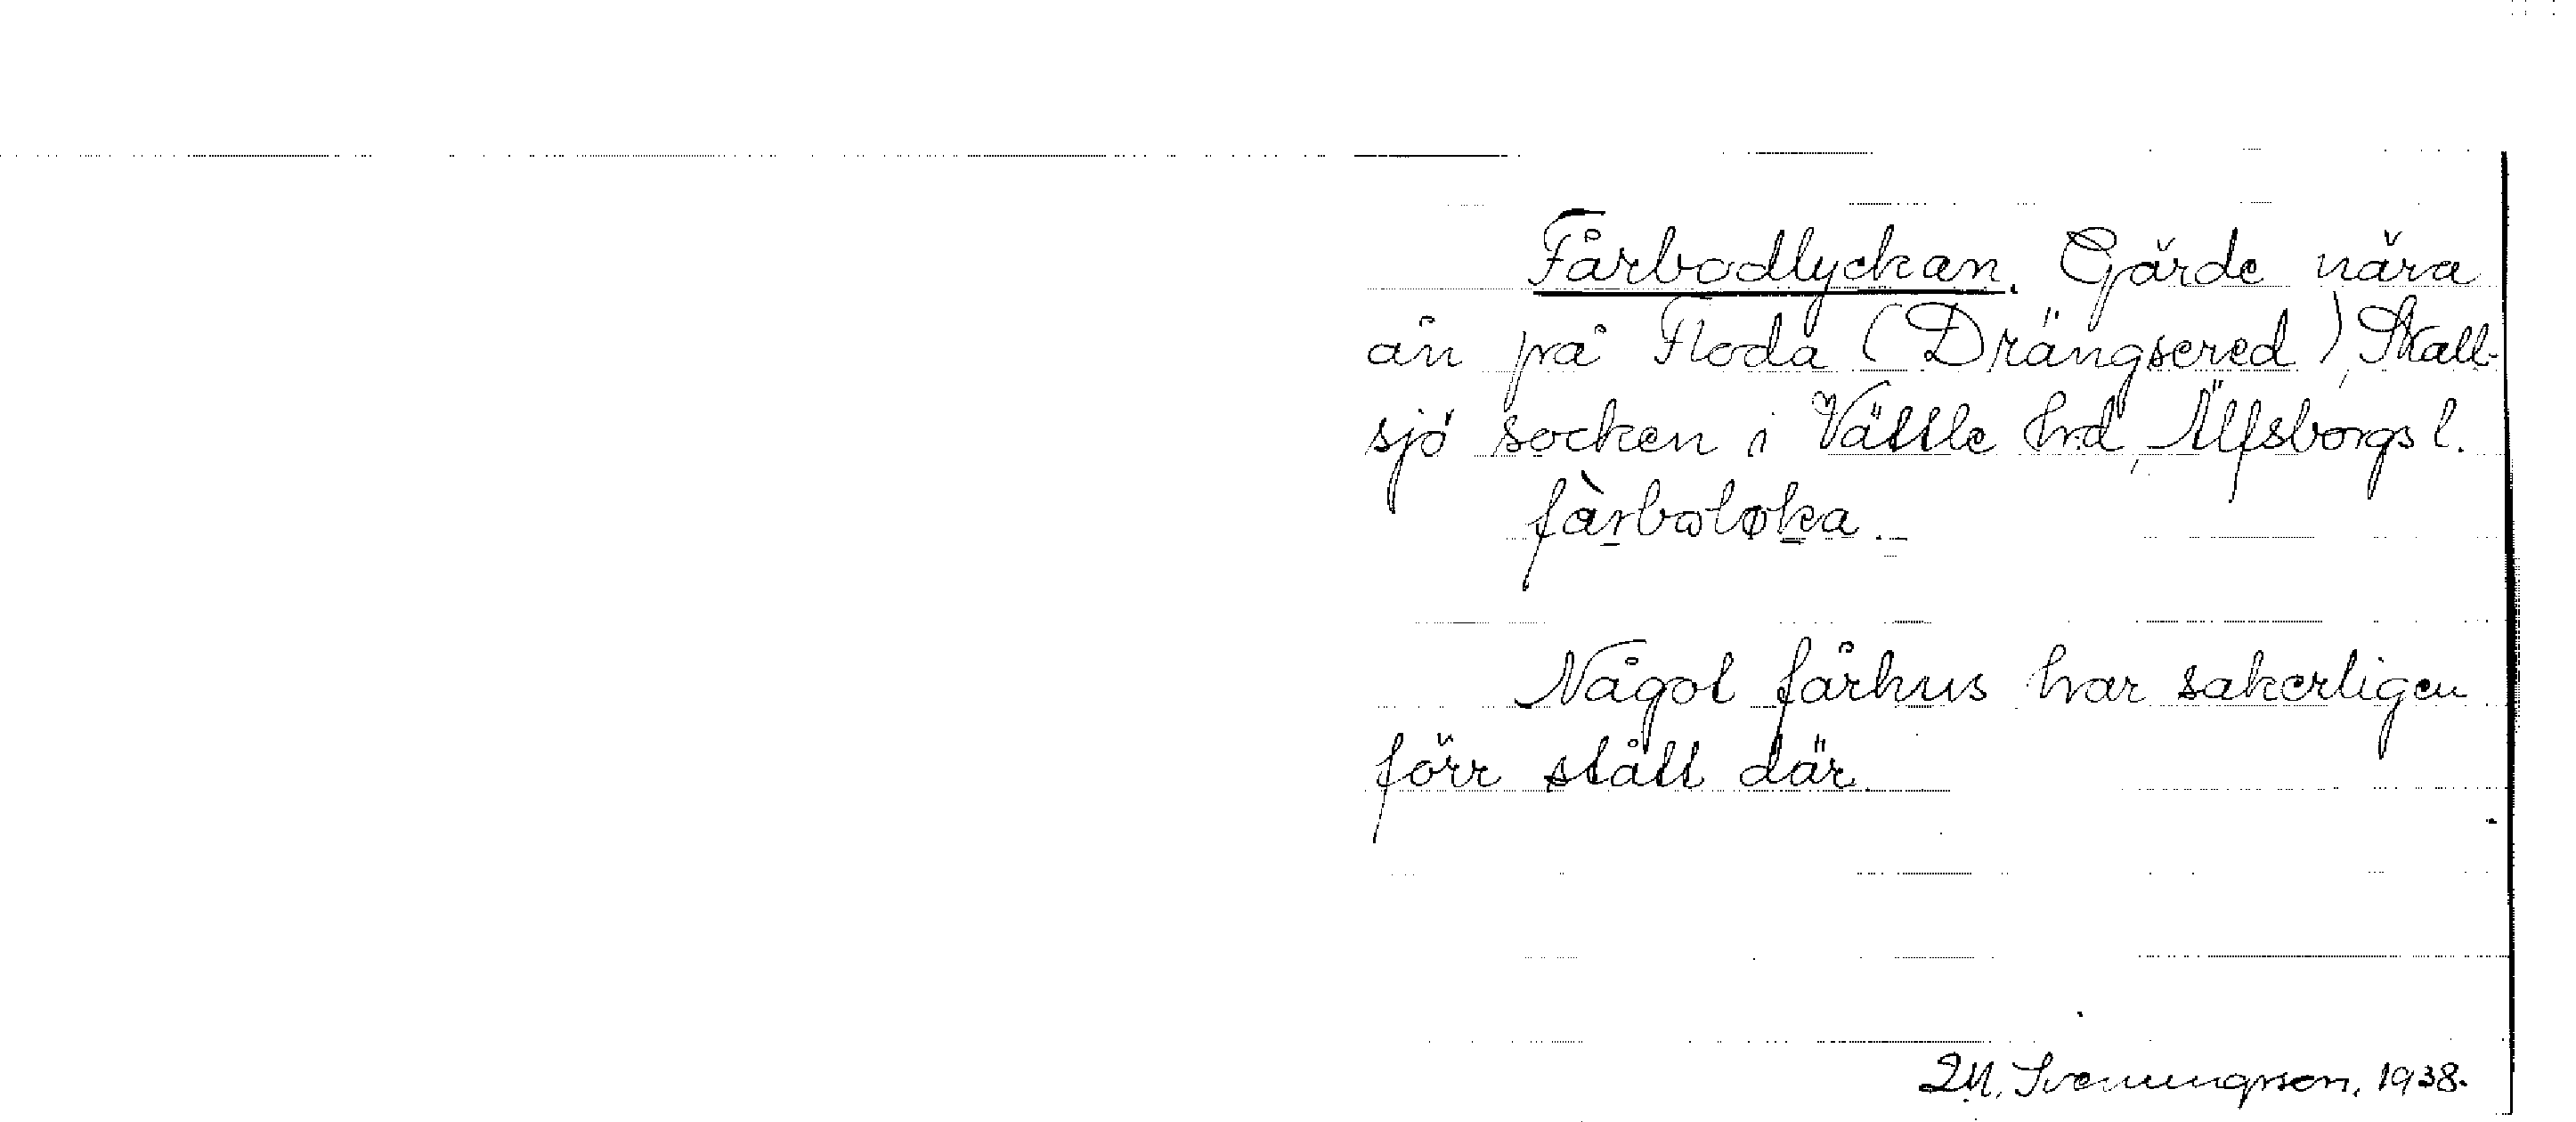 Fårbodlyckan. Gärde nära
ån på Floda (Drängsered), Skall-
sjö socken i Vättle hrd, Älfsborgs l.
fàrboløka.
Något fårhus har säkerligen
förr stått där.
Svenungsson. 1938.